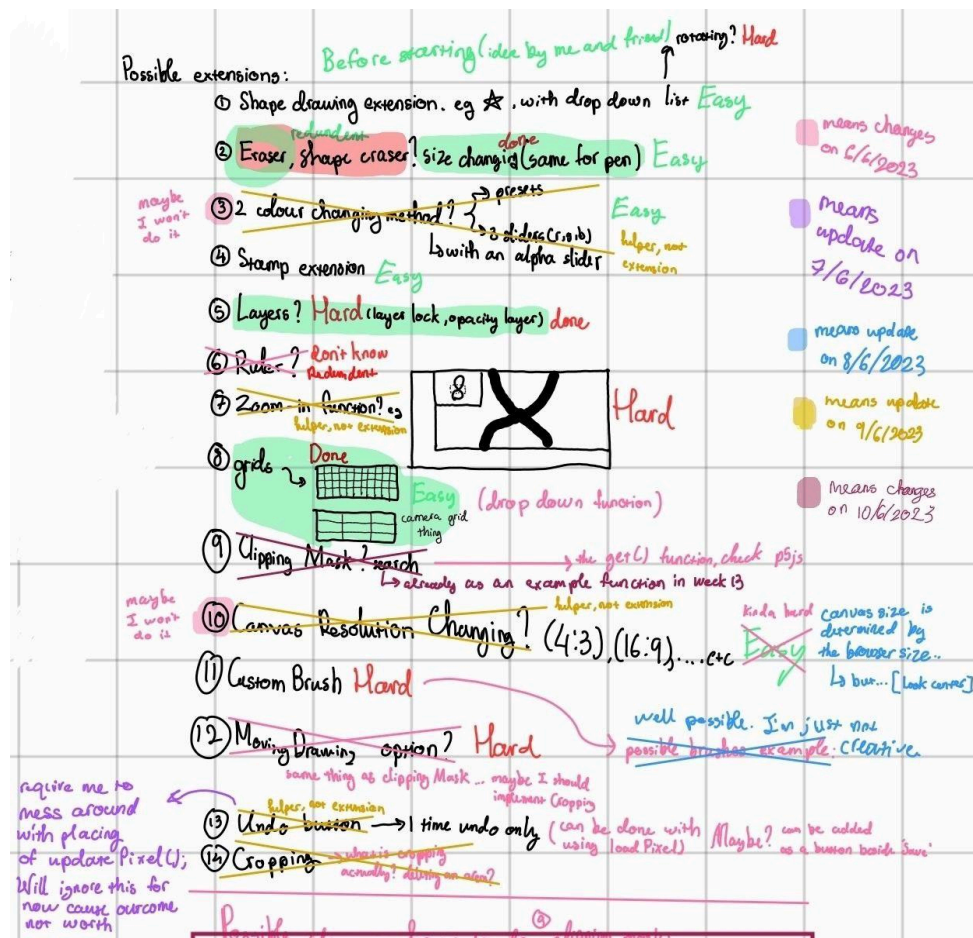 Before starting (idea by me and friend)
rotating? Hard
Possible extensions:
① Shape drawing extension. eg ☆, with drop down list Easy
redundent
done
② Eraser, shape eraser? size changing (same for pen) Easy
means changes
on 6/6/2023
maybe
I won't
do it
③ 2 colour changing method?
→ presets
→ 3 sliders (r,g,b)
↳ with an alpha slider
Easy
helper, not
extension
means
update on
7/6/2023
④ Stamp extension Easy
⑤ Layers? Hard (layer lock, opacity layer) done
means update
on 8/6/2023
⑥ Ruler? Don't know
Redundent
⑦ Zoom-in function? eg
helper, not extension
8
Hard
means update
on 9/6/2023
⑧ grids
Done
Easy (drop down function)
camera grid
thing
means changes
on 10/6/2023
⑨ Clipping Mask? search → the get() function, check p5js
↳ already as an example function in week 13
maybe
I won't
do it
helper, not extension
⑩ Canvas Resolution Changing? (4:3), (16:9), .... etc
Kinda hard
Easy
canvas size is
determined by
the browser size..
↳ but... [look center]
⑪ Custom Brush Hard
well possible. I'm just not
possible brushes example. creative
⑫ Moving Drawing option? Hard
same thing as clipping Mask ... maybe I should
implement Cropping
require me to
mess around
with placing
of updatePixel();
Will ignore this for
now cause outcome
not worth
helper, not extension
⑬ Undo button → 1 time undo only (can be done with
using loadPixel)
Maybe? can be added
as a button beside 'save'
⑭ Cropping → what is cropping
actually? deleting an area?